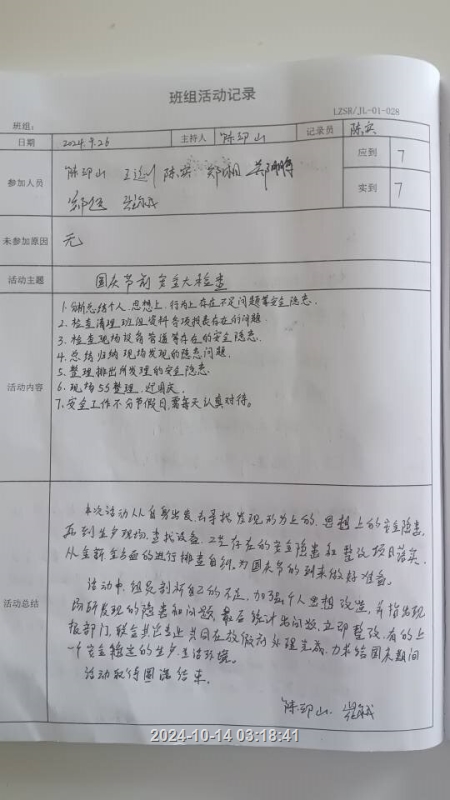 班组活动记录
LZSR/JL-01-028
班组：
日期 2024.9.26 主持人 陈印山 记录员 陈宾
参加人员 陈印山 陈宾 应到 7
实到 7
未参加原因 无
活动主题 国庆节前安全大检查
活动内容
1.分析总结个人、思想上、行为上存在不足问题等安全隐患.
2.检查清理班组资料各项报表存在的问题.
3.检查现场设备管道等存在的安全隐患.
4.总结归纳现场发现的隐患问题.
5.整理排出所发理的安全隐患.
6.现场5S整理.
7.安全工作不分节假日,需每天认真对待。
活动总结
本次活动从自身出发,去寻找发现行为上的、思想上的安全隐患,
再到生产现场,查找设备、工艺存在的安全隐患和整改项目落实.
从全新全方面的进行排查自纠,为国庆节的到来做好准备.
活动中,组员剖析自己的不足,加强个人思想改造,并指出现
场所发现的隐患和问题,最后统计出问题,立即整改,有的上
报部门,联合其它专业共同在放假前处理完成,力求给国庆期间
一个安全稳定的生产、生活环境.
活动取得圆满结束.
陈印山.
2024-10-14 03:18:41